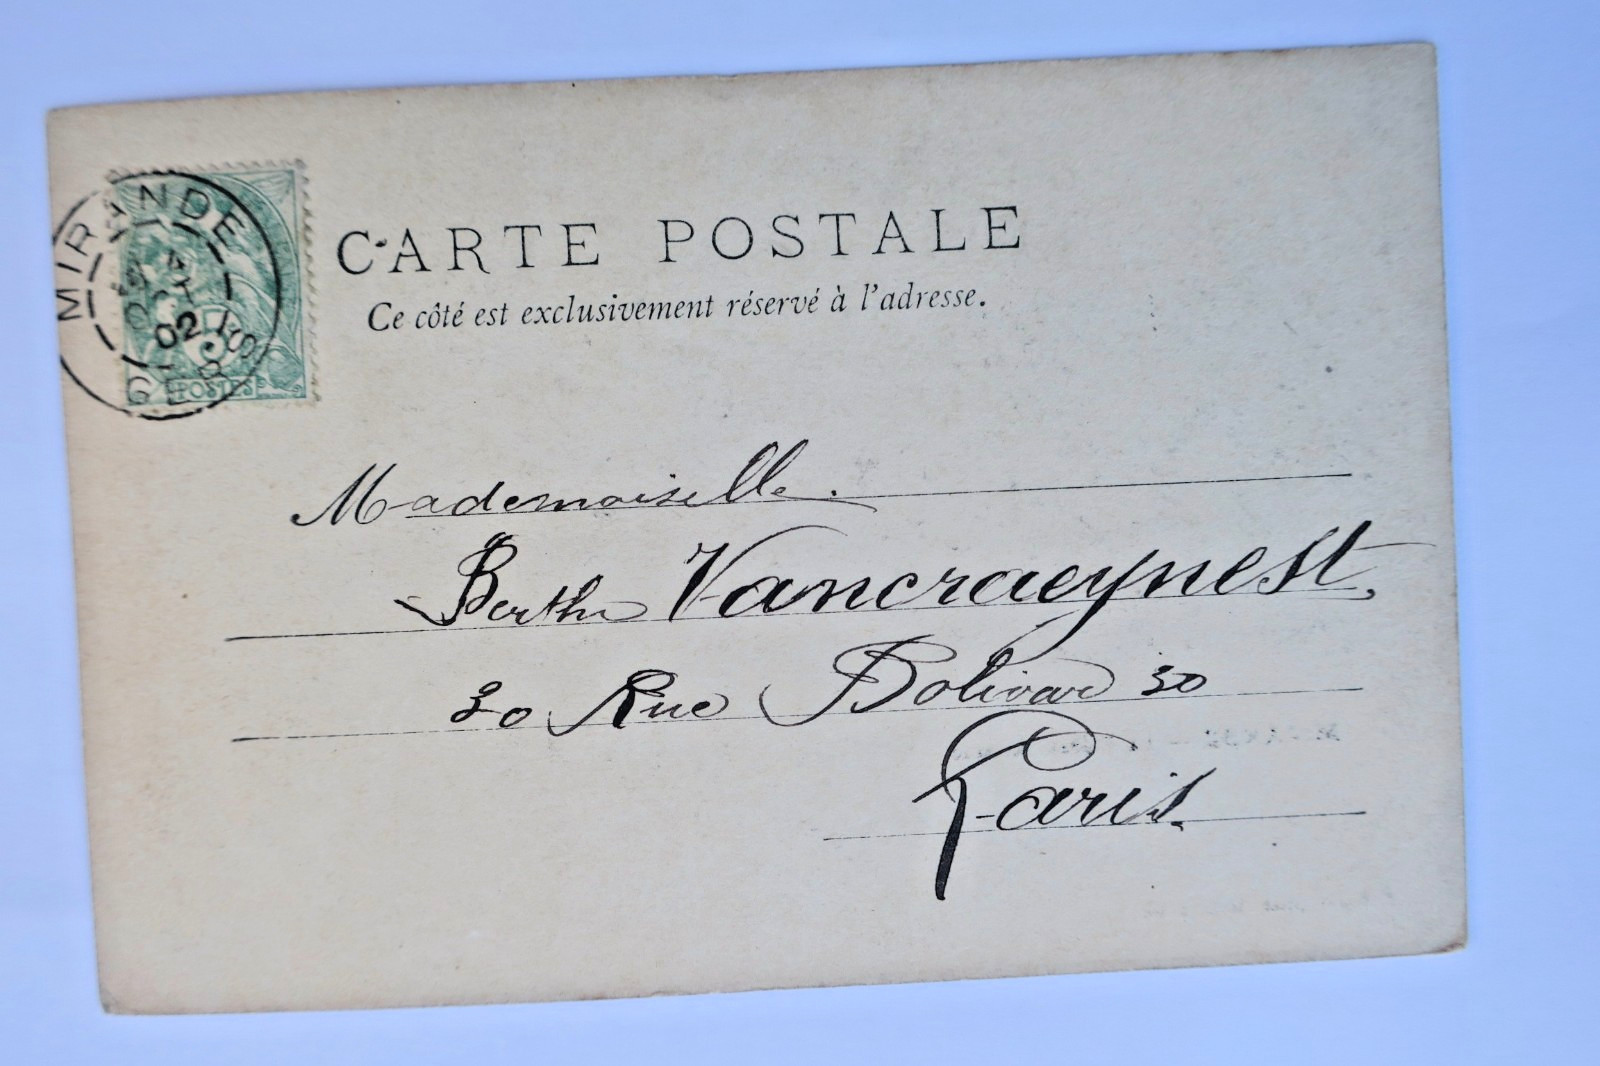 MIRANDE
4
OCT
02
GERS
5
POSTES
CARTE POSTALE
Ce côté est exclusivement réservé à l'adresse.
Mademoiselle.
Berthe Vancraeynest,
30 Rue Bolivar 30
Paris.